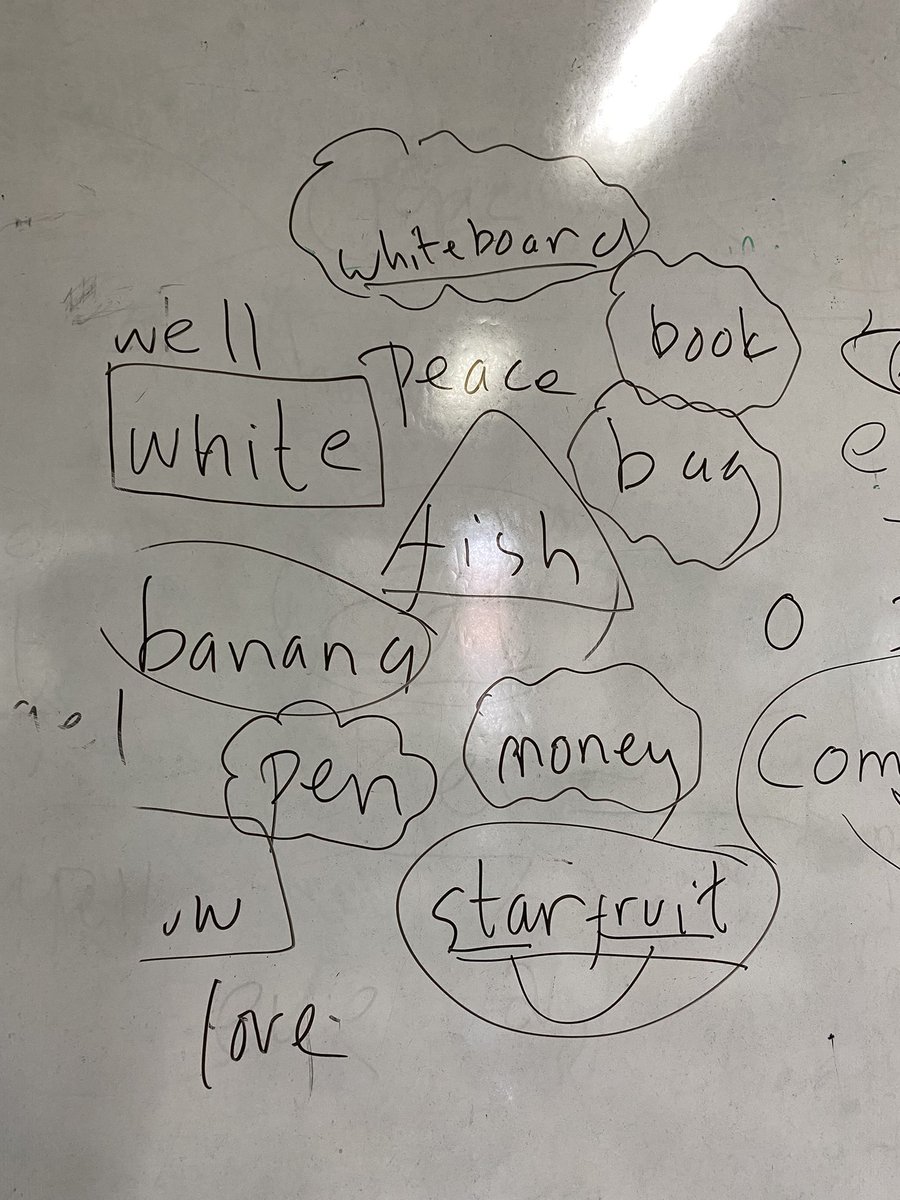 whiteboard
book
well
peace
white
bug
e
fish
o
banana
pen
money
Com
starfruit
love